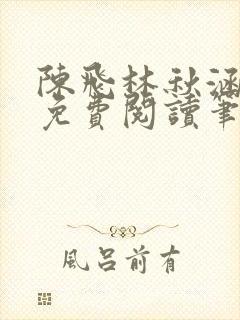 陳飛林秋涵
免費閱讀筆
風呂前有